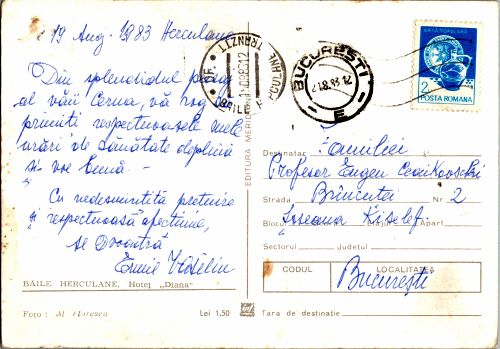 19 Aug. 1983 Herculane
Din splendidul peisaj
al văii Cerna, vă rog
primiti respectuoasele mele
urări de sănătate deplină
si voe bună -
Cu nedesmintită pretuire
și respectuoasă afectiune,
al Dvoastră
Emil
BĂILE HERCULANE, Hotel „Diana"
Foto: Al. Florescu
Lei 1,50
EDITURA MERIDIANE
OF. TRANZIT
BĂILE HERCULANE
BUCUREȘTI
21.8.83.12
E
ARTA POPULARĂ
2
POSTA ROMANA
Destinatar Familiei
Profesor Eugen
Strada Brîncutei Nr. 2
Bloc Soseaua Kiselef Apart.
Sectorul Județul
CODUL LOCALITATEA
București
Țara de destinație